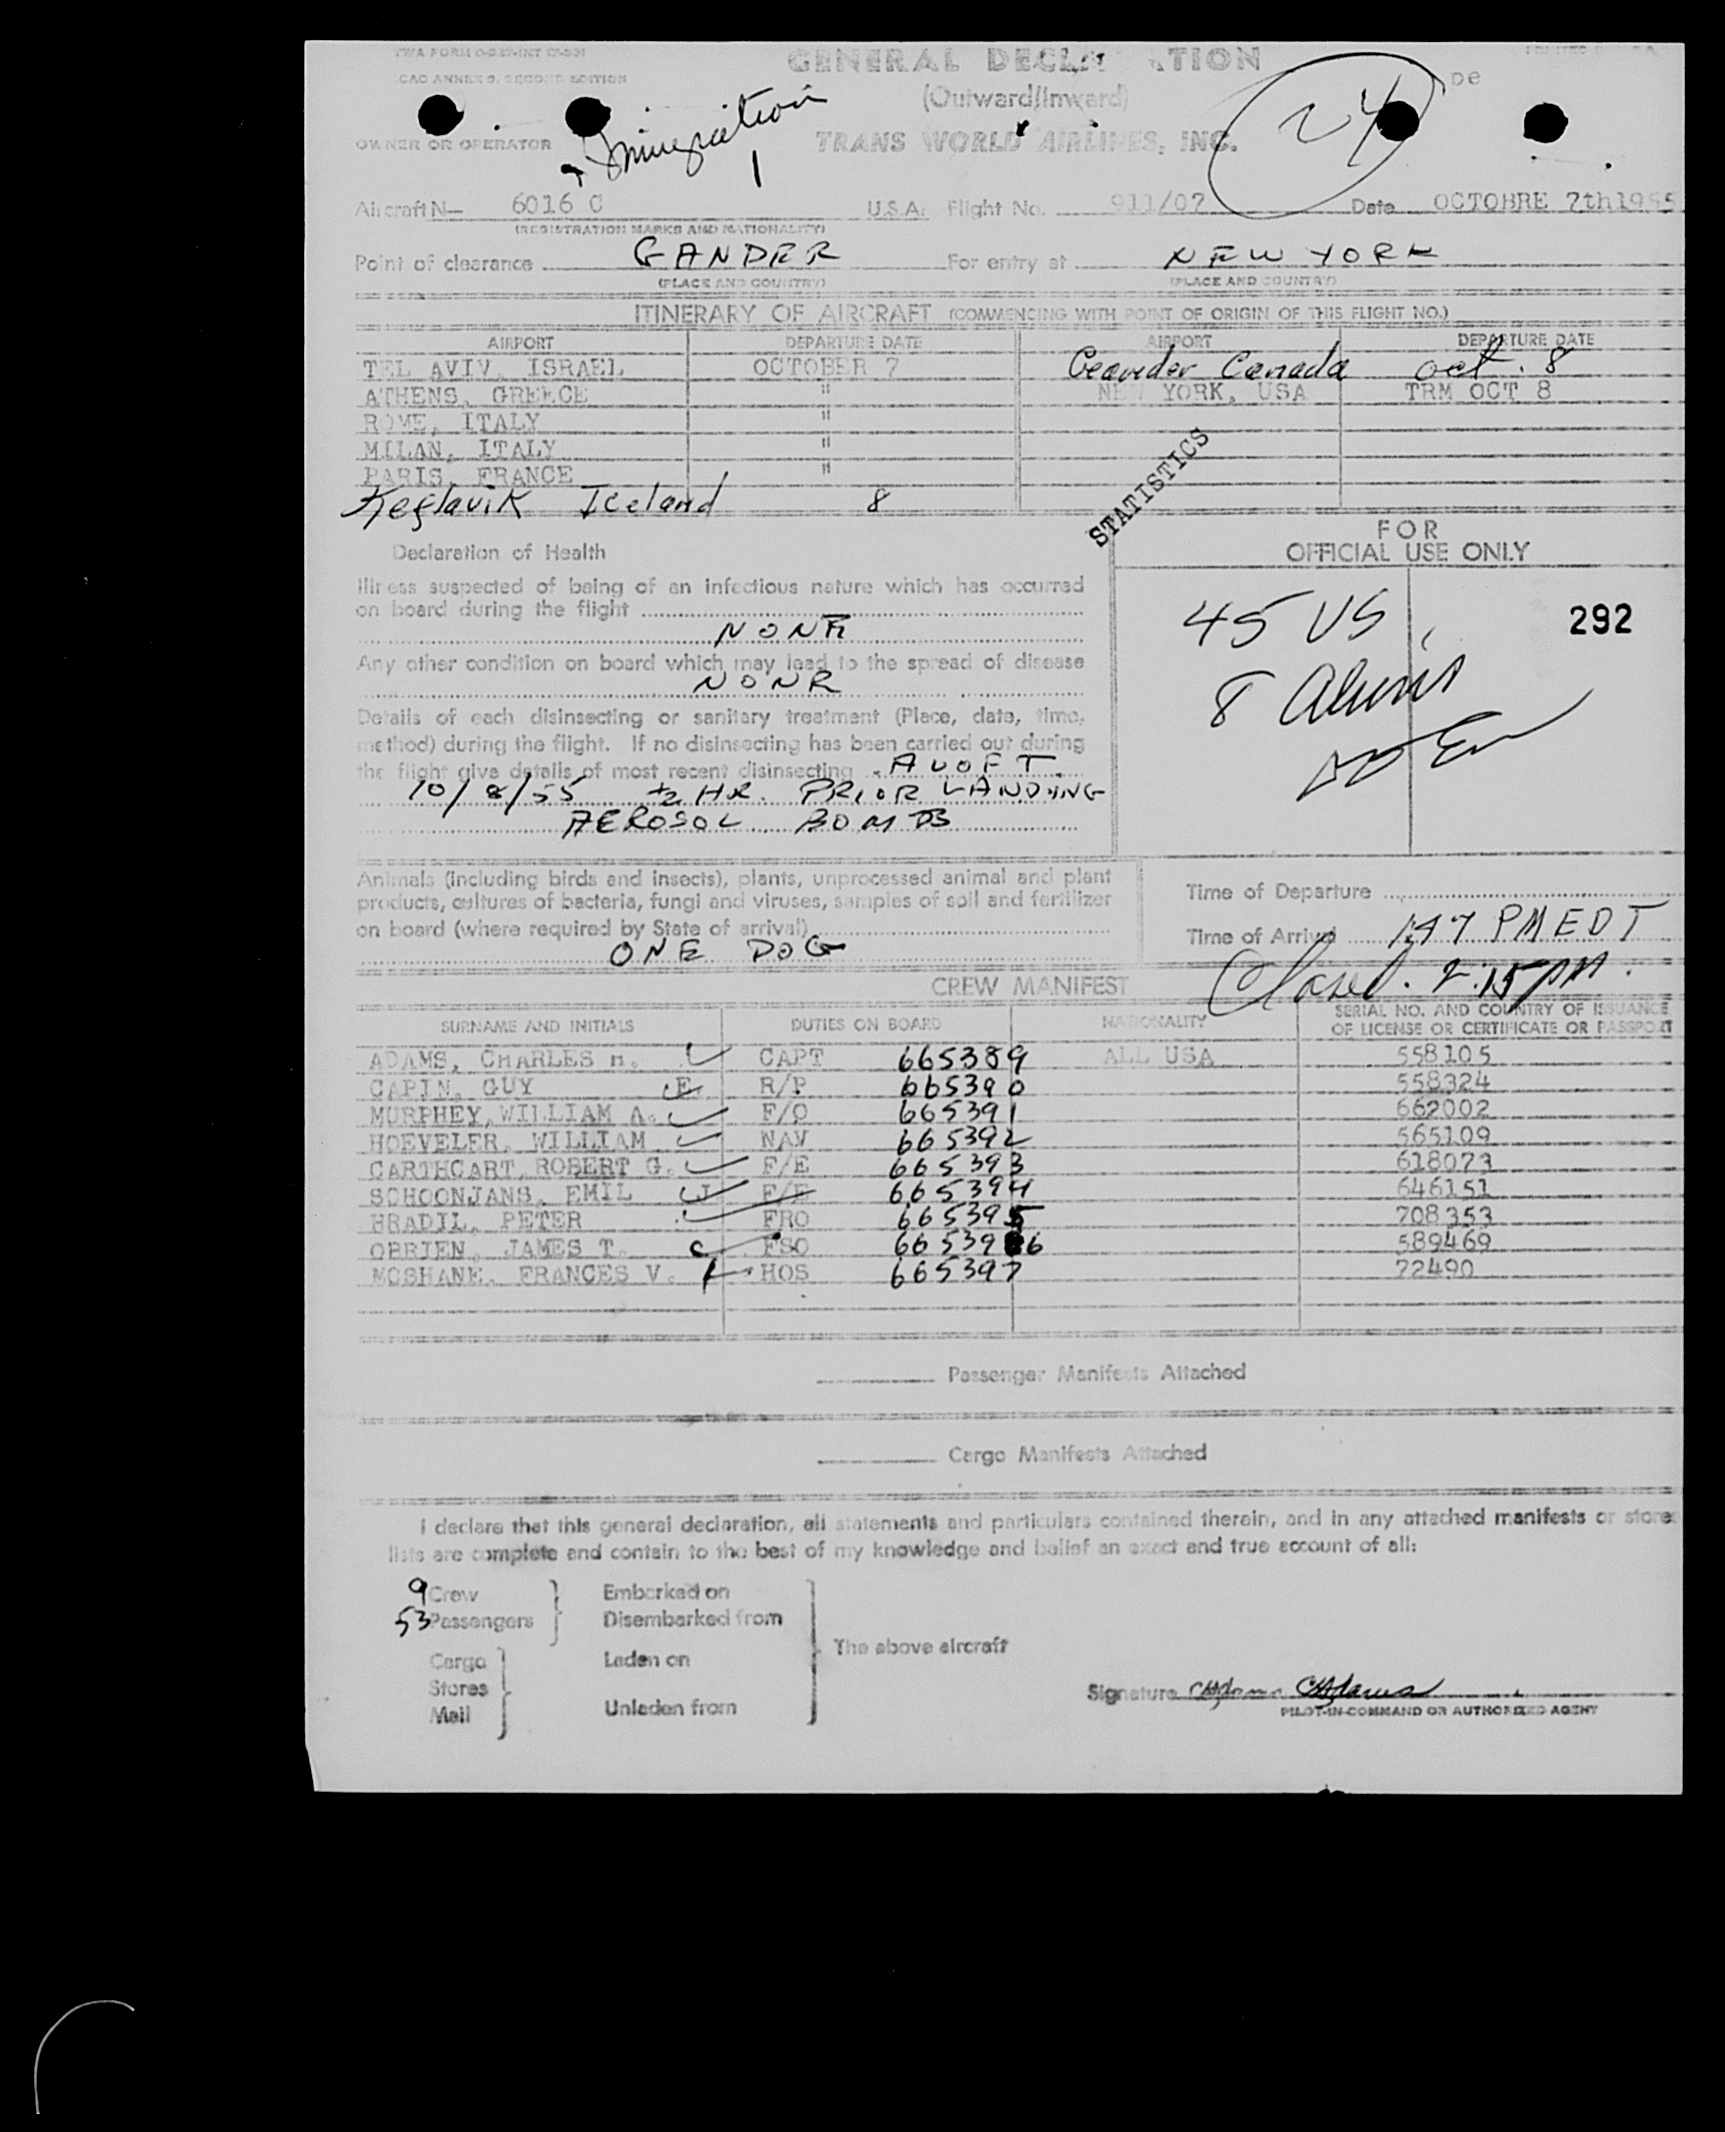 TWA FORM
ICAO ANNEX 9, SECOND EDITION
GENERAL DECLARATION
(Outward/Inward)
24
OWNER OR OPERATOR
Immigration
TRANS WORLD AIRLINES, INC.
Aircraft N— 6016 C U.S.A. Flight No. 911/07 Date OCTOBRE 7th1955
(REGISTRATION MARKS AND NATIONALITY)
Point of clearance GANDER For entry at NEW YORK
(PLACE AND COUNTRY) (PLACE AND COUNTRY)
ITINERARY OF AIRCRAFT (COMMENCING WITH POINT OF ORIGIN OF THIS FLIGHT NO.)
AIRPORT DEPARTURE DATE AIRPORT DEPARTURE DATE
TEL AVIV, ISRAEL OCTOBER 7 Geander Canada oct. 8
ATHENS, GREECE " NEW YORK, USA TRM OCT 8
ROME, ITALY "
MILAN, ITALY "
PARIS, FRANCE "
Keflavik Iceland 8
STATISTICS
FOR
OFFICIAL USE ONLY
Declaration of Health
Illness suspected of being of an infectious nature which has occurred
on board during the flight
NONE
Any other condition on board which may lead to the spread of disease
NONE
Details of each disinsecting or sanitary treatment (Place, date, time,
method) during the flight. If no disinsecting has been carried out during
the flight give details of most recent disinsecting ALOFT.
10/8/55 ½ HR. PRIOR LANDING
AEROSOL BOMBS
45 US
292
8 Aliens
Animals (including birds and insects), plants, unprocessed animal and plant
products, cultures of bacteria, fungi and viruses, samples of soil and fertilizer
on board (where required by State of arrival)
ONE DOG
Time of Departure
Time of Arrival 147 PM EDT
Closed. 2:15 PM.
CREW MANIFEST
SURNAME AND INITIALS DUTIES ON BOARD NATIONALITY SERIAL NO. AND COUNTRY OF ISSUANCE OF LICENSE OR CERTIFICATE OR PASSPORT
ADAMS, CHARLES H. CAPT 665389 ALL USA 558105
CAPIN, GUY E R/P 665390 558324
MURPHEY, WILLIAM A. F/O 665391 662002
HOEVELER, WILLIAM NAV 665392 565109
CARTHCART, ROBERT G. F/E 665393 618073
SCHOONJANS, EMIL J F/E 665394 646151
HRADIL, PETER FRO 665395 708353
OBRIEN, JAMES T. FSO 665396 589469
MCSHANE, FRANCES V. HOS 665397 72490
Passenger Manifests Attached
Cargo Manifests Attached
I declare that this general declaration, all statements and particulars contained therein, and in any attached manifests or stores
lists are complete and contain to the best of my knowledge and belief an exact and true account of all:
9 Crew Embarked on
53 Passengers Disembarked from
The above aircraft
Cargo Laden on
Stores
Mail Unladen from
Signature CHAdams CHAdams
PILOT-IN-COMMAND OR AUTHORIZED AGENT